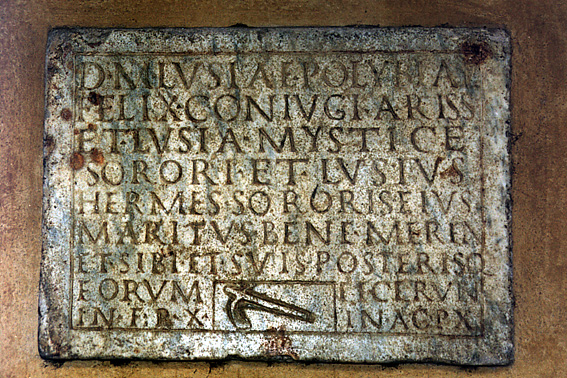 D·M·LVSIAE·POLYBIAE
FELIX·CONIVGI·KARISS
ET·LVSIA·MYSTICE
SORORI·ET·LVSIVS
HERMES·SORORIS·EIVS
MARITVS·BENE·MEREN
ET·SIBI·ET·SVIS·POSTERISQ
EORVM FECERVN
IN·F·P·X IN·AG·P·X